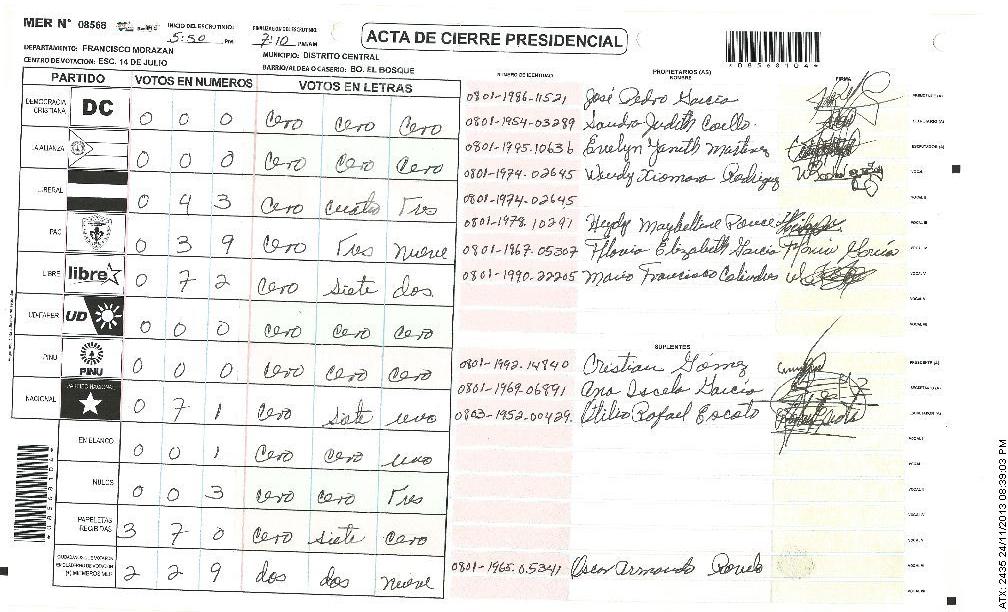 MER N° 08568
INICIO DEL ESCRUTINIO: 5:50 PM
FINALIZACION DEL ESCRUTINIO: 7:10 PM/AM
ACTA DE CIERRE PRESIDENCIAL
*08568104*
DEPARTAMENTO: FRANCISCO MORAZAN
MUNICIPIO: DISTRITO CENTRAL
CENTRO DE VOTACION: ESC. 14 DE JULIO
BARRIO/ALDEA O CASERIO: BO. EL BOSQUE
PARTIDO VOTOS EN NUMEROS VOTOS EN LETRAS
DEMOCRACIA CRISTIANA DC 0 0 0 Cero Cero Cero
LA ALIANZA 0 0 0 Cero Cero Cero
LIBERAL 0 4 3 Cero Cuatro Tres
PAC 0 3 9 Cero Tres nueve
LIBRE libre 0 7 2 Cero Siete dos
UD-FAPER UD 0 0 0 Cero Cero Cero
PINU PINU 0 0 0 Cero Cero Cero
NACIONAL PARTIDO NACIONAL 0 7 1 Cero Siete uno
EN BLANCO 0 0 1 Cero Cero uno
NULOS 0 0 3 Cero Cero Tres
PAPELETAS RECIBIDAS 3 7 0 Cero Siete Cero
CIUDADANOS QUE VOTARON EN CUADERNO DE VOTACION (+) MIEMBROS MER 2 2 9 dos dos nueve
NUMERO DE IDENTIDAD PROPIETARIOS (AS) NOMBRE FIRMA
0801-1986-11521 José Pedro Garcia PRESIDENTE (A)
0801-1954-03289 Sandra Judith Coello SECRETARIO (A)
0801-1995-10636 Evelyn Janeth Martinez ESCRUTADOR (A)
0801-1974-02645 Wendy Xiomara Rodriguez VOCAL I
0801-1974-02645 VOCAL II
0801-1978-10291 Heydy Maybelline Ponce VOCAL III
0801-1967-05307 Flavia Elizabeth Garcia Flavia Garcia VOCAL IV
0801-1990-22205 Mario Francisco VOCAL V
SUPLENTES
0801-1992-14840 Cristian Gómez PRESIDENTE (A)
0801-1969-06891 Ana Garcia SECRETARIO (A)
0803-1952-00429 Otilio Rafael ESCRUTADOR (A)
VOCAL I
VOCAL II
0801-1965-05341 Oscar Armando
*08568104*
ATX: 2435 24/11/2013 08:39:03 PM